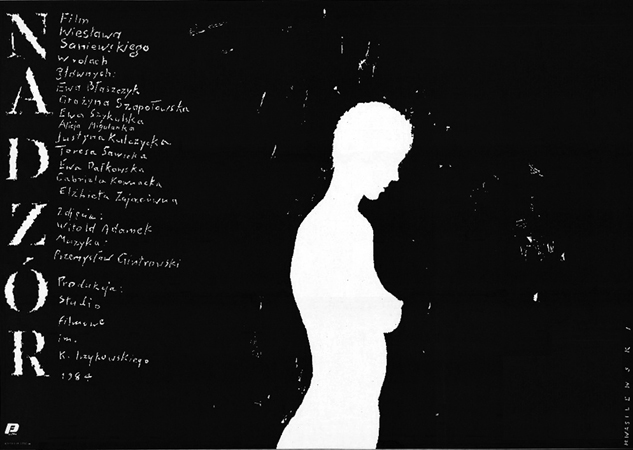 NADZÓR
Film
Wiesława
Saniewskiego
w rolach
głównych:
Ewa Błaszczyk
Grażyna Szapołowska
Ewa Szykulska
Alicja Migulanka
Justyna Kulczycka
Teresa Sawicka
Ewa Dałkowska
Gabriela Kownacka
Elżbieta Zającówna
Zdjęcia:
Witold Adamek
Muzyka:
Przemysław Gintrowski
Produkcja:
Studio
Filmowe
im.
K. Irzykowskiego
1984
WASILEWSKI